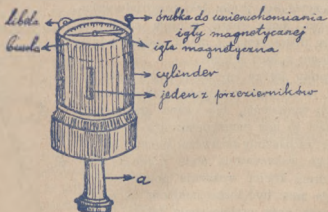 libela
śrubka do unieruchomiania
igły magnetycznej
busola
igła magnetyczna
cylinder
jeden z przezierników
a